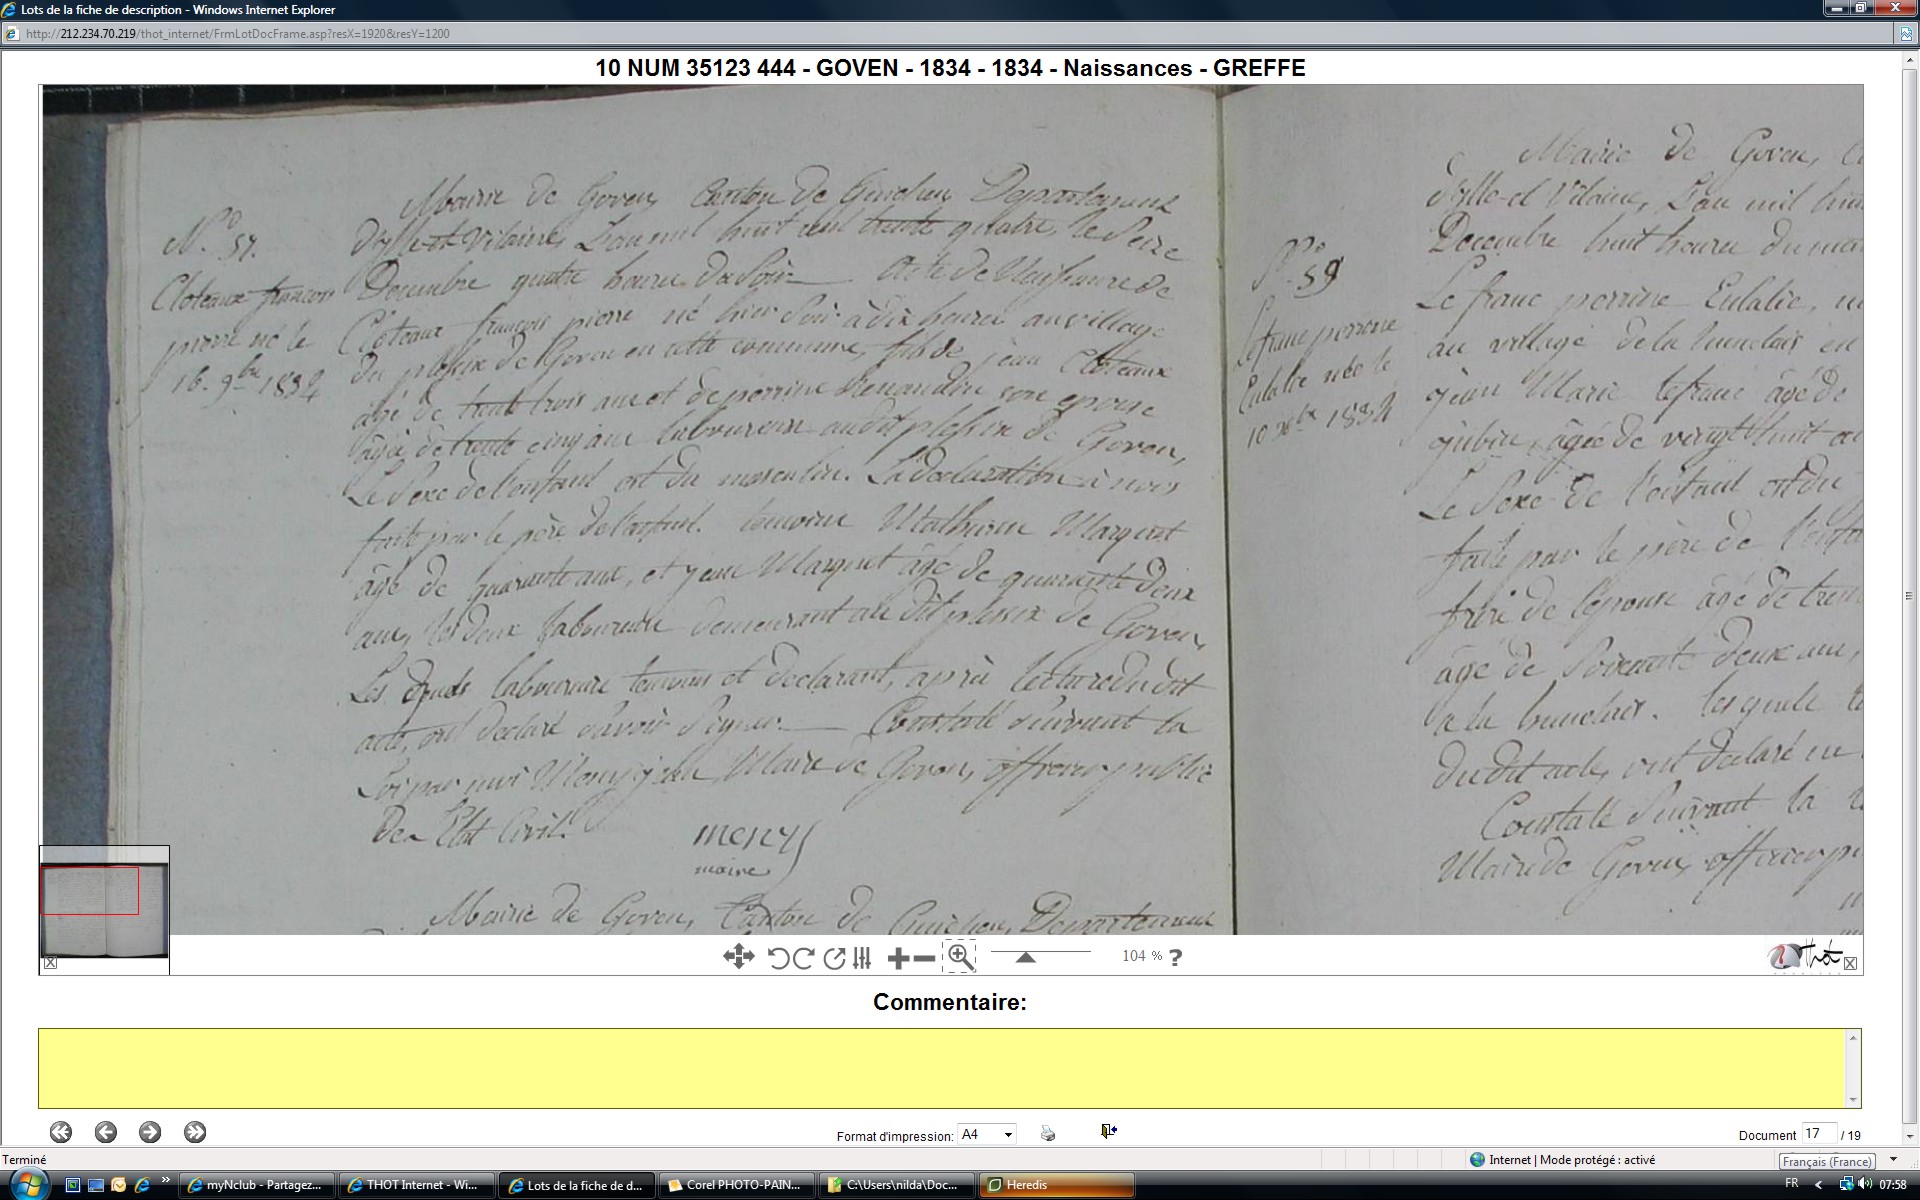 Lots de la fiche de description - Windows Internet Explorer
http://212.234.70.219/thot_internet/FrmLotDocFrame.asp?resX=1920&resY=1200
10 NUM 35123 444 - GOVEN - 1834 - 1834 - Naissances - GREFFE
N.o 57.
Cloteaux françois
pierre né le
16. 9bre 1834
Mairie de Goven, Canton de Guichen, Departement
d'ylle et Vilaine, L'an mil huit cent trente quatre, le Seize
Decembre quatre heures du Soir — Acte de Naissance de
Cloteaux françois pierre né hier Soir à dix heures au village
du plessix de Goven en cette commune, fils de jean Cloteaux
âgé de trente trois ans et de perrine son epouse
âgée de trente cinq ans laboureurs au dit plessix de Goven,
Le Sexe de l'enfant est du masculin. La declaration à nous
faite par le père de l'enfant. temoins Mathurin Marquet
âgé de quarante ans, et jean Marquet âgé de quarante deux
ans, les deux laboureurs demeurant au dit plessix de Goven,
Les laboureurs temoins et declarant, après lecture du dit
acte, ont declaré Signer. — Constaté Suivant la
Loi par moi Mercy jean Maire de Goven, officier public
de l'Etat Civil.
mercy
maire
Mairie de Goven, Canton de Guichen, Departement
No 59
Lefranc perrine
Eulalie née le
10 xbre 1834
Mairie de Goven,
d'ylle-et Vilaine, L'an mil huit
Decembre huit heures du matin
Le franc perrine Eulalie,
au village de la en
jean Marie lefranc âgé de
jubin, âgée de vingt huit
Le Sexe de l'enfant est du
faite par le père de l'enfant
frère de l'epouse âgé de
âgé de Soixante deux ans,
à la lesquels
du dit acte, ont declaré
Constaté Suivant la
Maire de Goven, officier
104 % ?
Thot
Commentaire:
Format d'impression: A4
Document 17 / 19
Terminé
Internet | Mode protégé : activé
Français (France)
myNclub - Partagez...
THOT Internet - Wi...
Lots de la fiche de d...
Corel PHOTO-PAIN...
C:\Users\nilda\Doc...
Heredis
FR
07:58